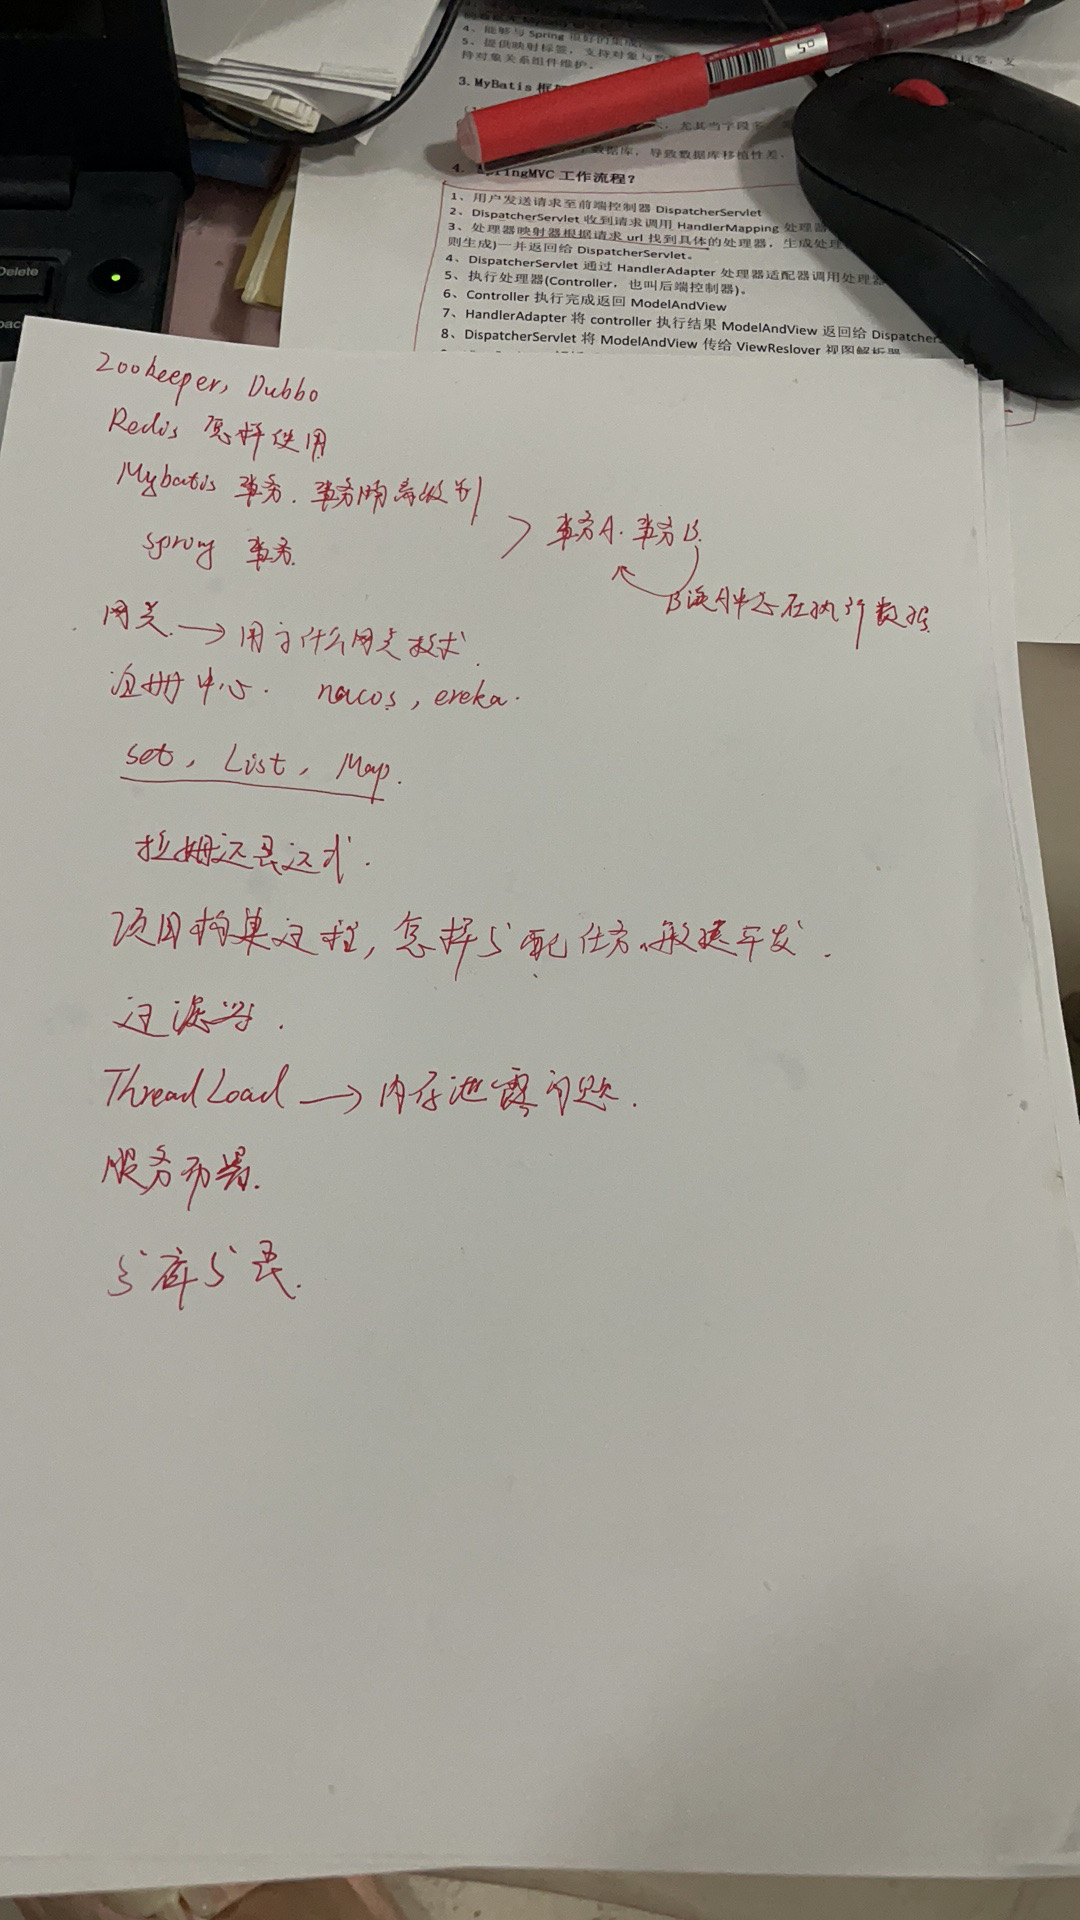 4、能够与 Spring 很好的集成;
5、提供映射标签，支持对象与数
标签，支
持对象关系组件维护。
3.MyBatis 框
尤其当字段多
数据库，导致数据库移植性差，
4.
ringMVC 工作流程?
1、用户发送请求至前端控制器 DispatcherServlet
2、DispatcherServlet 收到请求调用 HandlerMapping 处理器
3、处理器映射器根据请求 url 找到具体的处理器，生成处理
则生成)一并返回给 DispatcherServlet。
4、DispatcherServlet 通过 HandlerAdapter 处理器适配器调用处理器
5、执行处理器(Controller，也叫后端控制器)。
6、Controller 执行完成返回 ModelAndView
7、HandlerAdapter 将 controller 执行结果 ModelAndView 返回给 Dispatchers
8、DispatcherServlet 将 ModelAndView 传给 ViewReslover 视图解析器
Delete
50
Zookeeper, Dubbo
Redis 怎样使用
Mybatis 事务. 事务隔离级别
Spring 事务.
> 事务A. 事务B.
B读A中正在执行数据.
网关. → 用了什么网关技术.
注册中心. nacos, ereka.
Set, List, Map.
拉姆达表达式.
项目构建过程, 怎样分配任务. 敏捷开发.
过滤器.
ThreadLoad → 内存泄露问题.
服务部署.
分库分表.